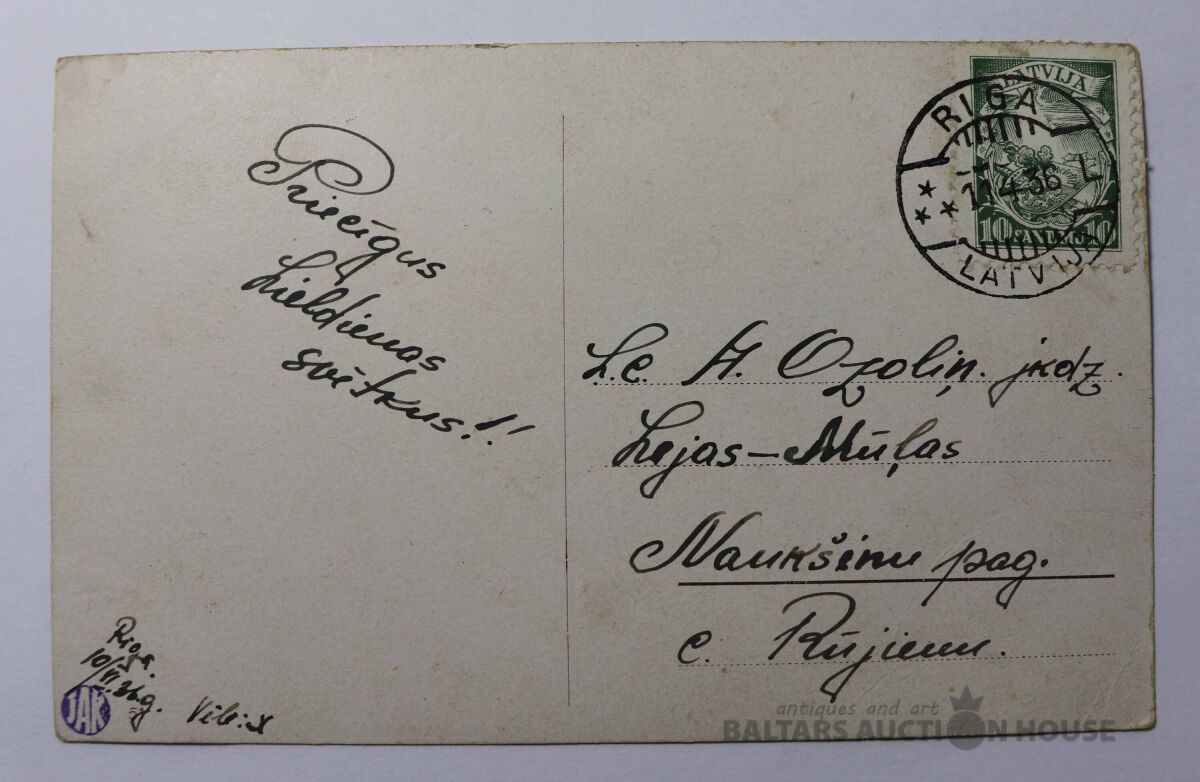 Priecīgus
Lieldienas
svētkus!!
Rīgā.
10/IV 36.g.
JAK
LATVIJA
10 SANTIMU 10
RIGA
11.4.36 L
LATVIJA
L.c. A. Ozoliņ. jkdz.
Lejas-Mūļas
Naukšēnu pag.
c. Rūjienu.
antiques and art
BALTARS AUCTION HOUSE